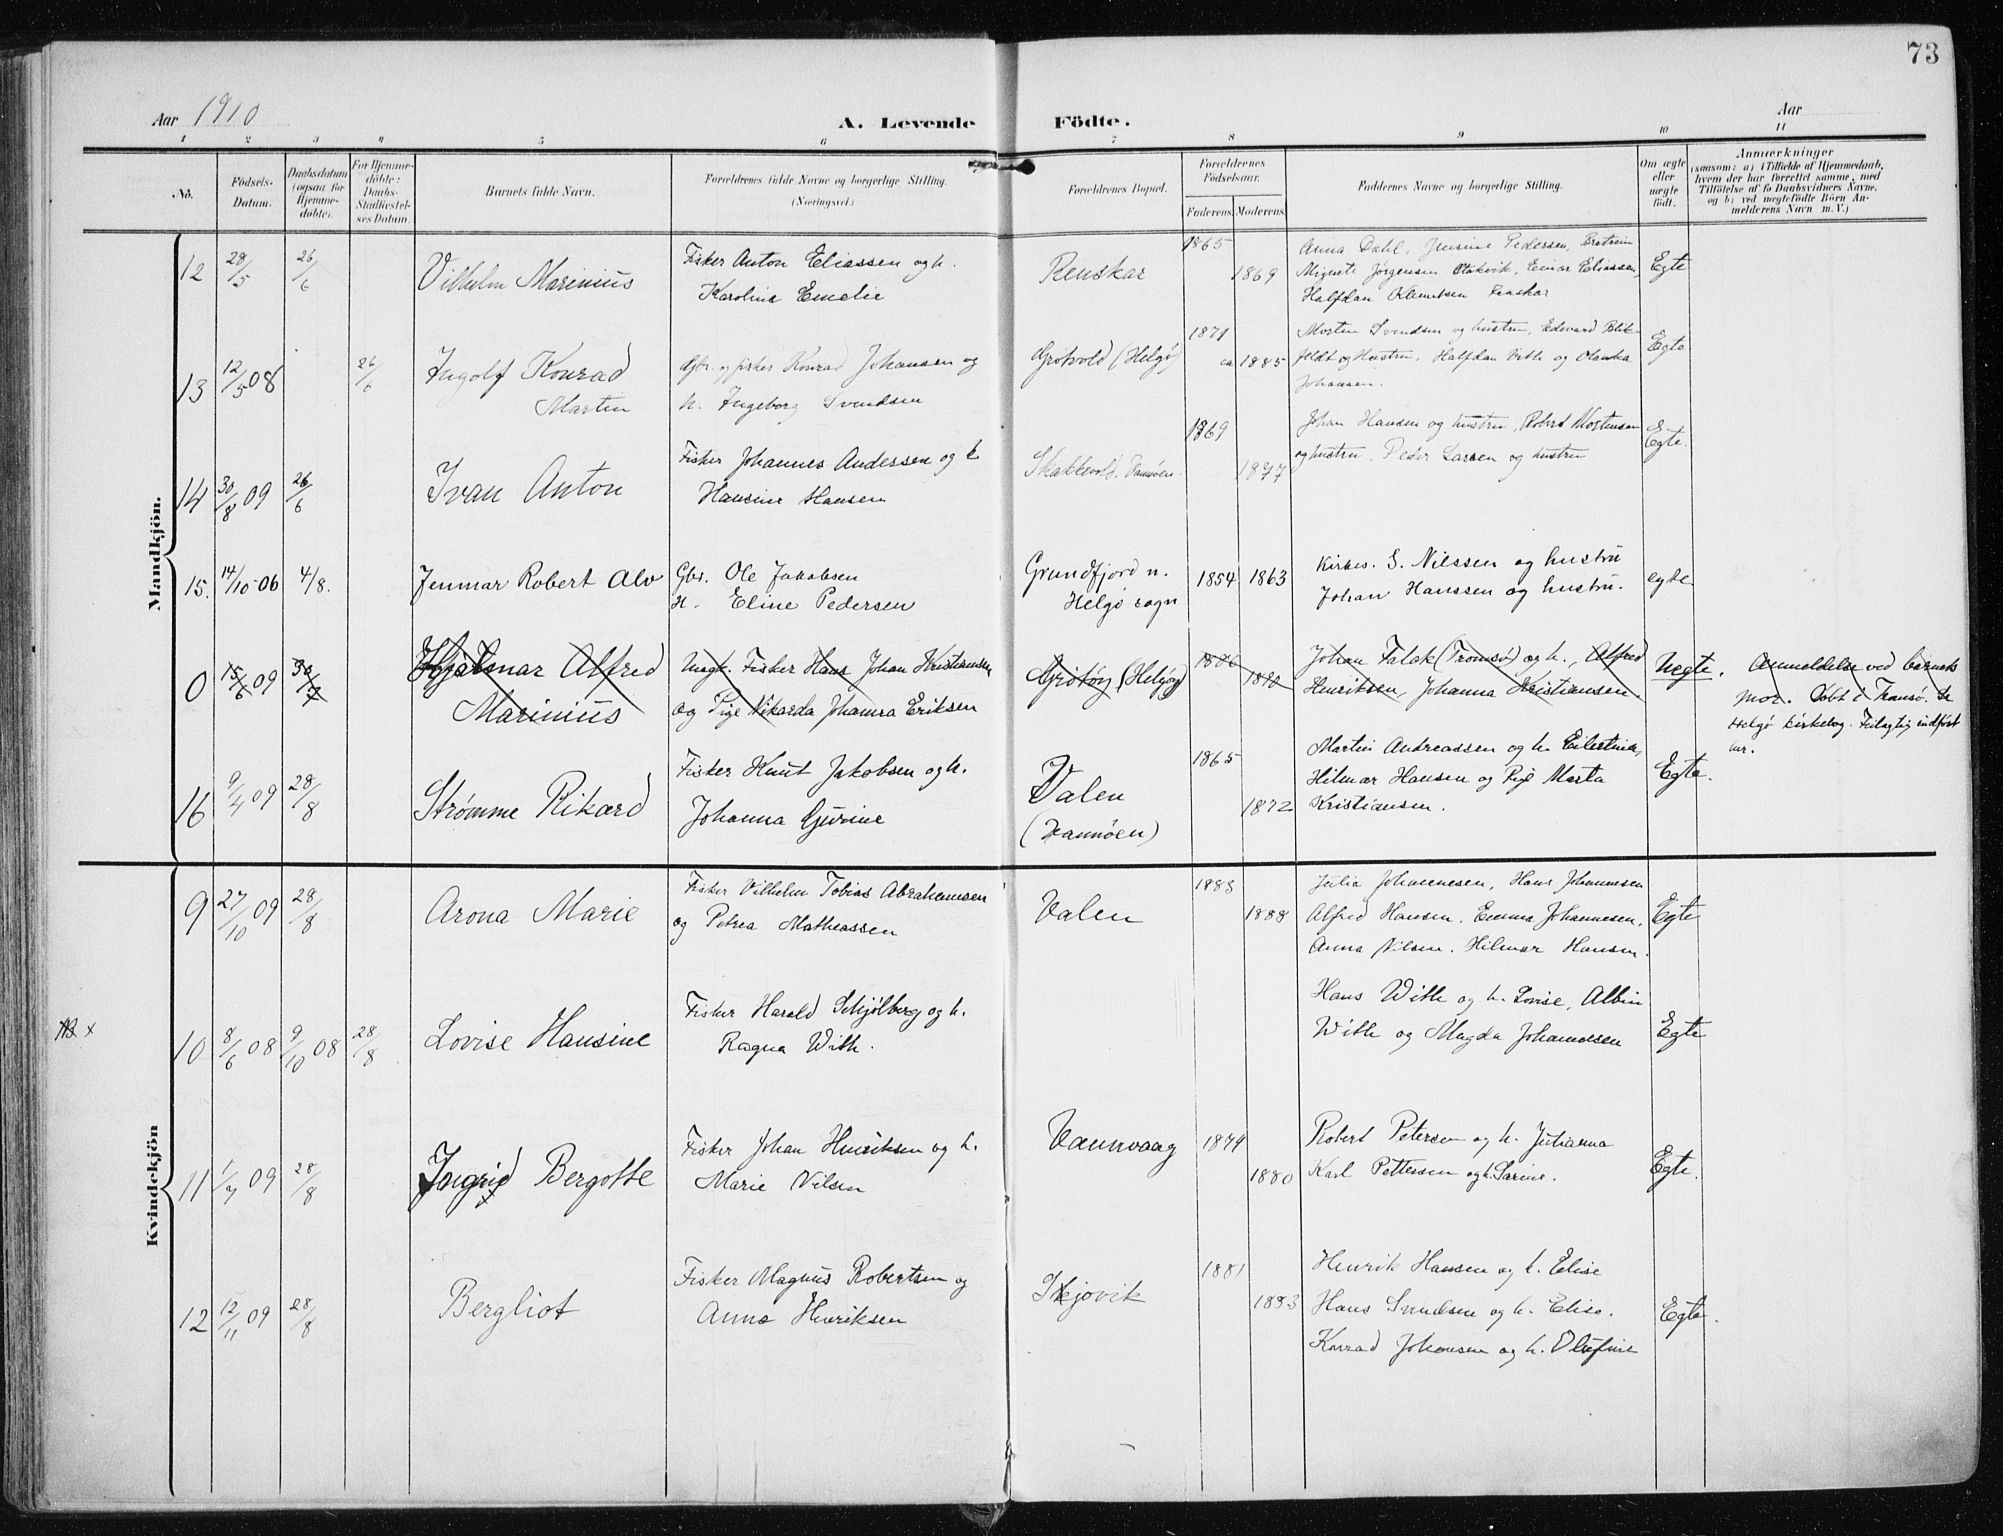 73
Aar 1910
A. Levende Födte.
Aar
1 2 3 4 5 6 7 8 9 10 11
No.
Födsels-Datum.
Daabsdatum (ogsaa for Hjemmedöbte).
For Hjemmedöbte: Daabs-Stadfæstelses Datum.
Barnets fulde Navn.
Forældrenes fulde Navne og borgerlige Stilling.
(Næringsvei.)
Forældrenes Bopæl.
Forældrenes Födselsaar.
Faderens. Moderens.
Faddernes Navne og borgerlige Stilling.
Om ægte eller uægte födt.
Anmærkninger
(saasom: a) i Tilfælde af Hjemmedaab,
hvem der har forrettet samme, med
Tilföielse af to Daabsvidners Navne,
og b) ved uægtefödte Börn An-
melderens Navn m. V.)
Mandkjön.
12 28/5 26/6 Vilhelm Marinius
Fisker Anton Eliassen og h.
Karoline Emelie
Renskar 1865 1869
Anna Dahl, Jensine Pedersen,
Jørgensen, Einar Eliassen,
Halfdan
Egte
13 12/5 08 26/6 Ingolf Konrad
Martin
Gbr. og fisker Konrad Johansen og
h. Ingeborg Svendsen
Grötvold (Helgø) 1871 ca 1885
Morten Svendsen og hustru, Edevard Blik-
feldt og Hustru, Halfdan With og Olanka
Johansen.
Egte
14 30/8 09 26/6 Ivan Anton
Fisker Johannes Andersen og h
Hansine Hansen
Vannöen. 1869 1877
Johan Hansen og hustru, Robert Mortensen
og hustru, Peder Larsen og hustru
Egte.
15. 14/10-06 4/8. Jenmar Robert Alv
Gbr. Ole Jakobsen
H. Eline Pedersen
Grundfjord n.
Helgö sogn
1854 1863
Kirkes. S. Nilssen og hustru
Johan Hanssen og hustru.
egte
0 15/6 09 30/7 Hjalmar Alfred
Marinius
Ungk. Fisker Hans Johan Kristiansen
og Pige Nikarda Johanna Eriksen
Grötöy (Helgöy) 1886 1890
Johan Falck (Tromsö) og h., Alfred
Henriksen, Johanna Kristiansen.
Uegte.
Anmeldelse ved barnets
mor. Döbt i Tromsö. Se
Helgö kirkebog. Feilagtig indført
her.
16 9/4 09 28/8 Strømme Rikard
Fisker Knut Jakobsen og h.
Johanna Gurine
Valen
(Vannöen)
1865 1872
Martin Andreassen og h. Eilertine,
Hilmar Hansen og Pige Marta
Kristiansen.
Egte.
Kvindekjön
9 27/10 09 28/8 Arona Marie
Fisker Vilhelm Tobias Abrahamsen
og Petrea Matheassen
Valen 1883 1888
Julia Johannesen, Hans Johannesen
Alfred Hansen, Emma Johannesen,
Anna Nilsen, Hilmar Hansen.
Egte
x
10 8/6 08 9/10 08 28/8 Lovise Hansine
Fisker Harald Schjölberg og h.
Ragna With.
Hans With og h. Lovise, Albin
With og Magda Johannesen
Egte
11 1/7 09 28/8 Ingrid Bergotte
Fisker Johan Henriksen og h.
Marie Nilsen
Vannvaag 1879 1880
Robert Petersen og h. Julianna
Karl Pettersen og h. Sarine.
Egte.
12 12/11 09 28/8 Bergliot
Fisker Magnus Robertsen og
Anna Henriksen
Skjovik 1881 1883
Henrik Hansen og h. Elise
Hans Svendsen og h. Elise.
Konrad Johansen og h. Olufine
Egte.